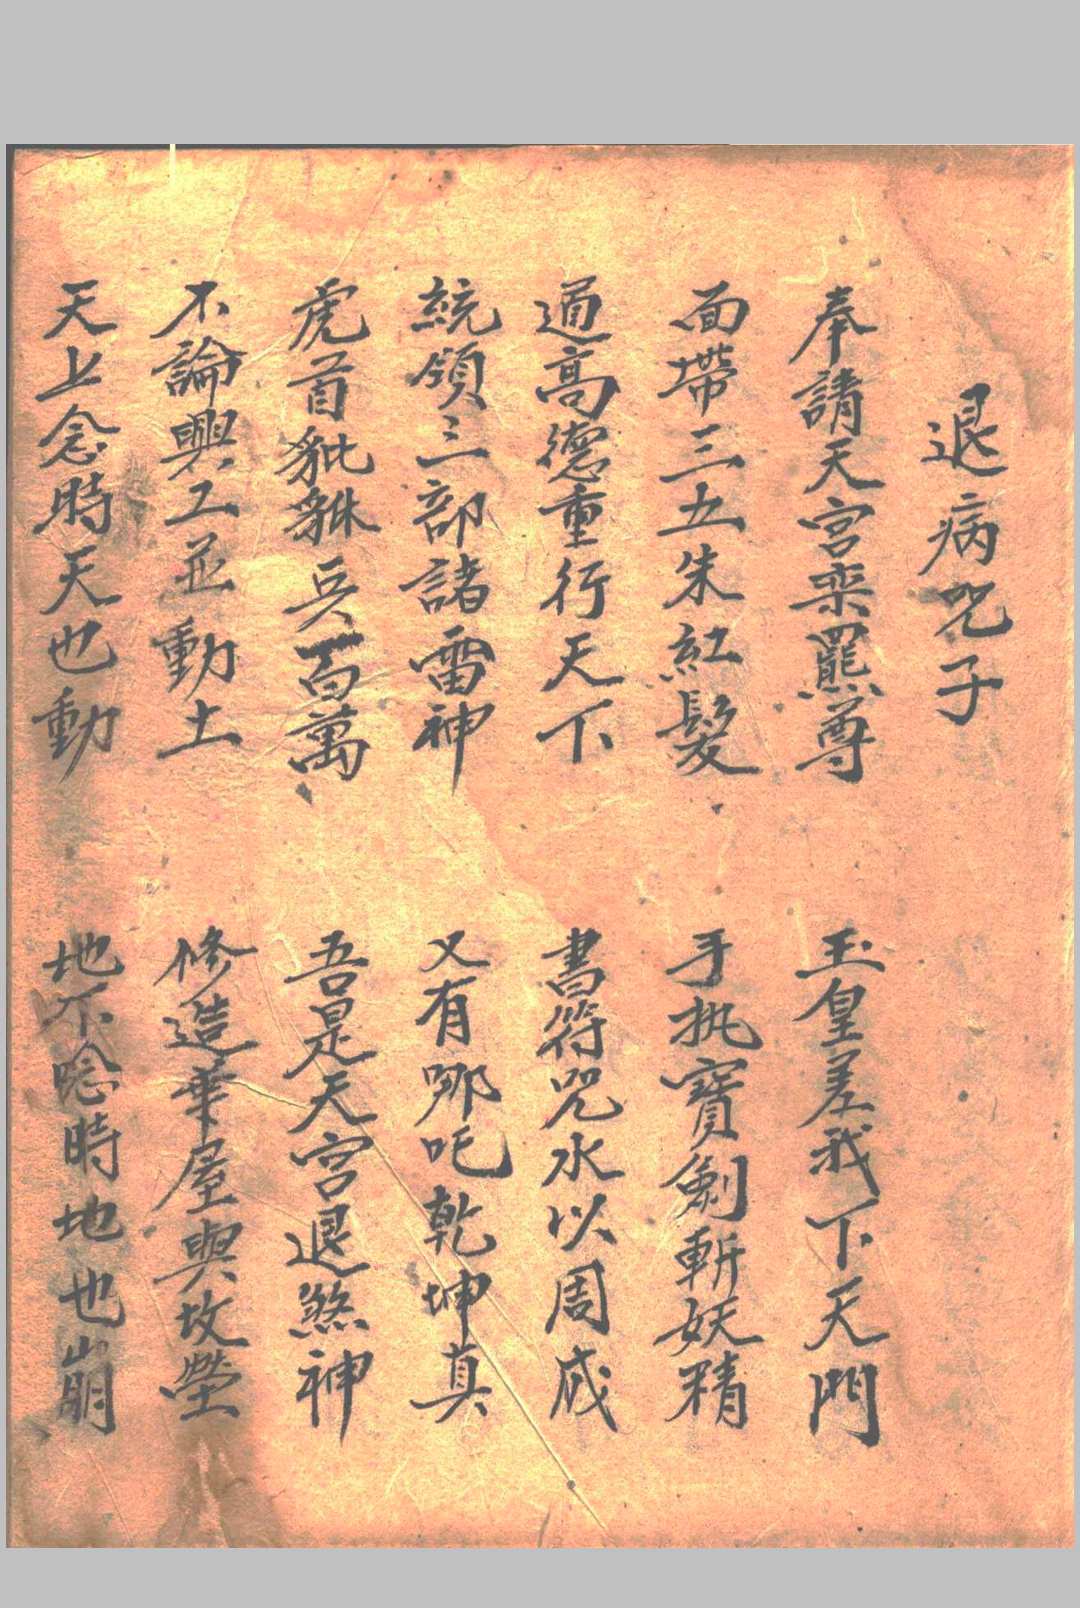 退病咒子
奉請天宮栾羆尊 玉皇差我下天門
面帶三五朱紅髮 手执寶劍斬妖精
道高德重行天下 書符咒水以周成
統領三部諸雷神 又有哪吒乾坤真
虎首貔貅兵百萬 吾是天宮退煞神
不論興工並動土 修造華屋與坟塋
天上念時天也動 地下念時地也崩